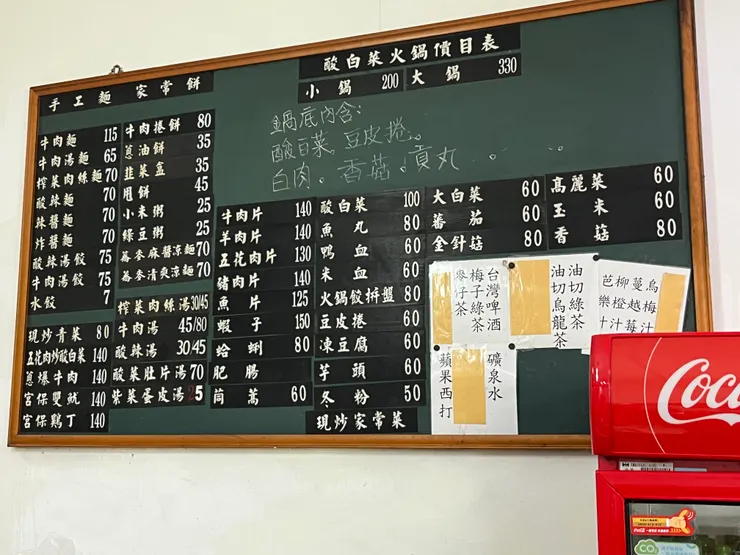 酸白菜火鍋價目表
小鍋 200 大鍋 330
鍋底內含:
酸白菜。豆皮捲。
白肉。香菇。貢丸。
手工麵 家常餅
牛肉麵 115
牛肉湯麵 65
榨菜肉絲麵 70
酸辣麵 70
辣醬麵 70
炸醬麵 70
酸辣湯餃 75
牛肉湯餃 75
水餃 7
牛肉捲餅 80
蔥油餅 35
韭菜盒 35
甩餅 45
小米粥 25
綠豆粥 25
蕎麥麻醬涼麵 70
蕎麥清爽涼麵 70
現炒青菜 80
五花肉炒酸白菜 140
蔥爆牛肉 140
宮保雙魷 140
宮保鷄丁 140
榨菜肉絲湯 30/45
牛肉湯 45/80
酸辣湯 30/45
酸菜肚片湯 70
紫菜蛋皮湯 25
牛肉片 140
羊肉片 140
五花肉片 130
豬肉片 140
魚片 125
蝦子 150
蛤蜊 80
肥腸
茼蒿 60
酸白菜 100
魚丸 80
鴨血 60
米血 60
火鍋餃拼盤 80
豆皮捲 60
凍豆腐 60
芋頭 60
冬粉 50
現炒家常菜
大白菜 60
蕃茄 60
金針菇 80
高麗菜 60
玉米 60
香菇 80
台灣啤酒
梅子綠茶
麥仔茶
油切綠茶
油切烏龍茶
烏梅汁
蔓越莓汁
柳橙汁
芭樂
礦泉水
蘋果西打
Coca